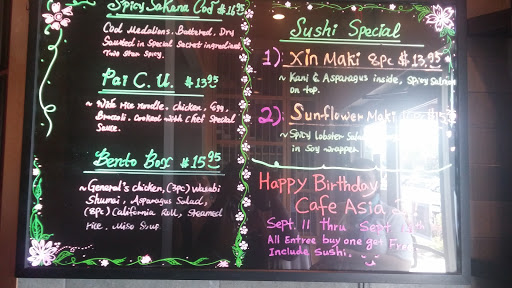 Spicy Sakana Cod $16.95
Cod Medalions, Battered, Dry
Sauteed in Special Secret ingredient
Two Star Spicy.
Pai C. U. $13.95
~ With Rice Noodle, chicken, Egg,
Brocoli. Cooked with Chef Special
Sauce.
Bento Box $15.95
~ General's chicken, (3pc) Wasabi
Shumai, Asparagus Salad,
(8pc) California Roll, Steamed
Rice, Miso Soup.
Sushi Special
1): Xin Maki 8pc $13.95
~ Kani & Asparagus inside, Spicy Salmon
on top.
2) Sunflower Maki $15.95
~ Spicy Lobster Salad
in Soy wrapper.
Happy Birthday
Cafe Asia
Sept. 11 thru Sept
All Entree buy one get Free
Include Sushi.